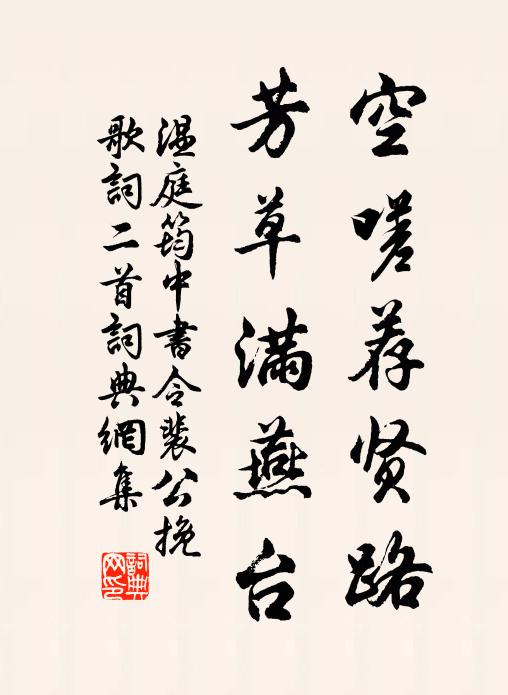 空嗟荐贤路
芳草满燕台
温庭筠中書令裴公挽
歌詞二首詞典網集
詞典网印